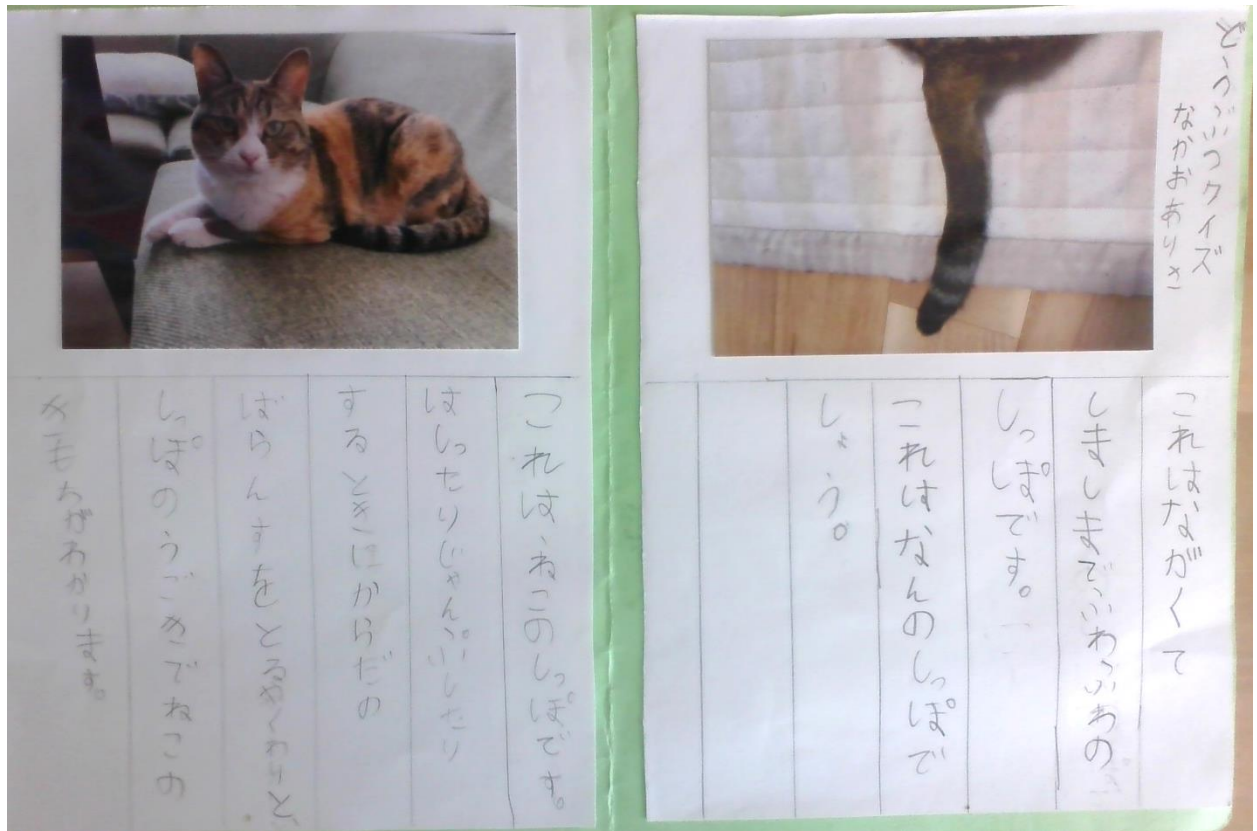 どうぶつクイズ
なかおありさ
これはながくて
しましまでふわふわの
しっぽです。
これはなんのしっぽで
しょう。
これは、ねこのしっぽです。
はしったりじゃんぷしたり
するときにからだの
ばらんすをとるやくわりと、
しっぽのうごきでねこの
きもちがわかります。